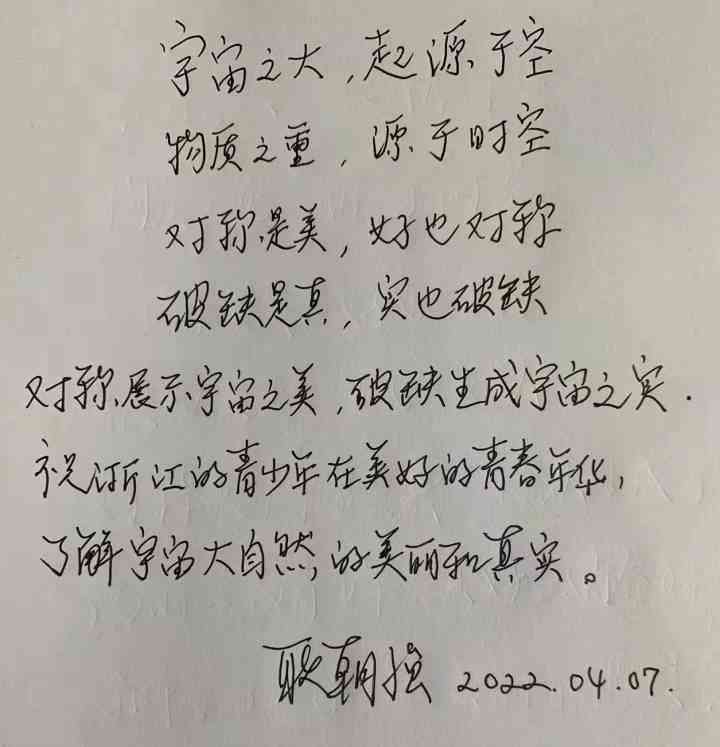 宇宙之大，起源于空
物质之重，源于时空
对称是美，好也对称
破缺是真，实也破缺
对称展示宇宙之美，破缺生成宇宙之实．
祝浙江的青少年在美好的青春年华，
了解宇宙大自然的美丽和真实。
耿朝强 2022.04.07.